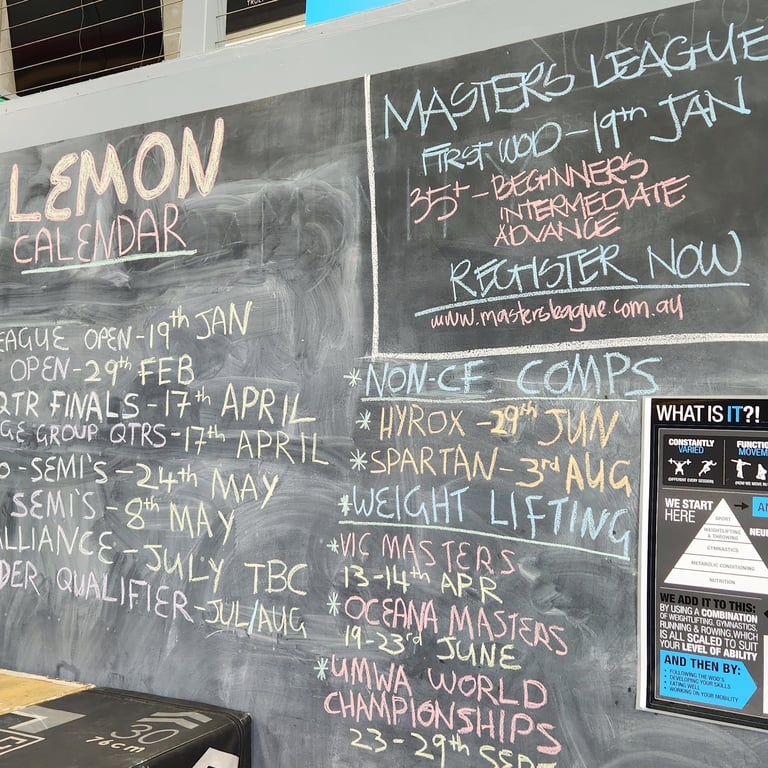 LEMON
CALENDAR
EAGUE OPEN-19th JAN
OPEN-29th FEB
QTR FINALS-17th APRIL
GE GROUP QTRS-17th APRIL
O-SEMI'S-24th MAY
SEMI'S-8th MAY
ALLIANCE-JULY TBC
DER QUALIFIER-JUL/AUG
MASTERS LEAGUE
FIRST WOD-19th JAN
35+-BEGINNERS
INTERMEDIATE
ADVANCE
REGISTER NOW
www.mastersleague.com.au
*NON-CF COMPS
*HYROX-29th JUN
*SPARTAN-3rd AUG
*WEIGHT LIFTING
*VIC MASTERS
13-14th APR
*OCEANA MASTERS
19-23rd JUNE
*UMWA WORLD
CHAMPIONSHIPS
23-29th SEPT
WHAT IS IT?!
CONSTANTLY
VARIED
(DIFFERENT EVERY SESSION)
FUNCTIO
MOVEM
(HOW WE MOVE IN
WE START
HERE
AN
NEU
SPORT
WEIGHTLIFTING
& THROWING
GYMNASTICS
METABOLIC CONDITIONING
NUTRITION
WE ADD IT TO THIS:
BY USING A COMBINATION
OF WEIGHTLIFTING, GYMNASTICS,
RUNNING & ROWING, WHICH
IS ALL SCALED TO SUIT
YOUR LEVEL OF ABILITY
AND THEN BY:
• FOLLOWING THE WOD'S
• DEVELOPING YOUR SKILLS
• EATING WELL
• WORKING ON YOUR MOBILITY
30
76cm